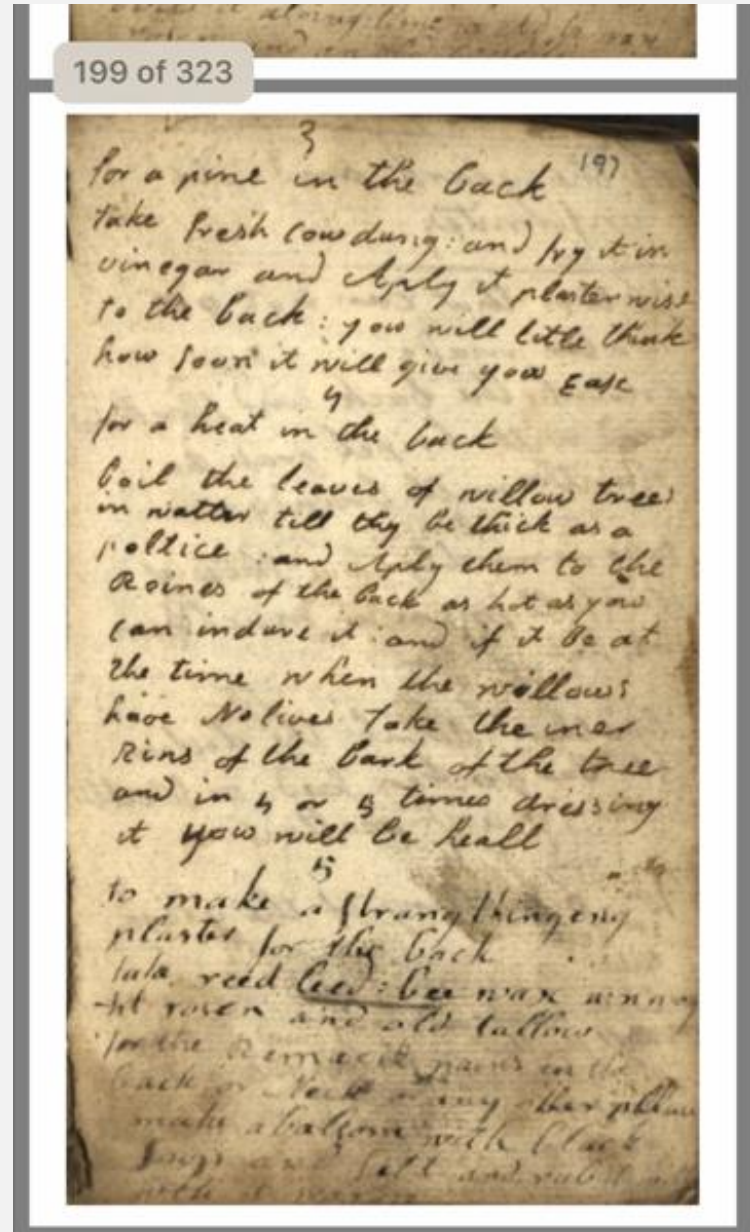 199 of 323
197
3
for a pine in the back
take fresh Cowdung: and fry it in
vinegar and Aply it plasterwise
to the back: you will litle think
how soon it will give you Ease
4
for a heat in the back
boil the leaves of willow trees
in watter till thy be thick as a
poltice: and Aply them to the
Reines of the back as hot as you
can indure it: and if it be at
the time when the willows
have No lives take the iner
Rins of the bark of the tree
and in 4 or 5 times dressing
it you will be heall
5
to make a strang
plaster for the back
take reed leed: bee wax
rosen and old tallow
for the pains in the
back or Neck or any other
make a balsom with black
and salt and